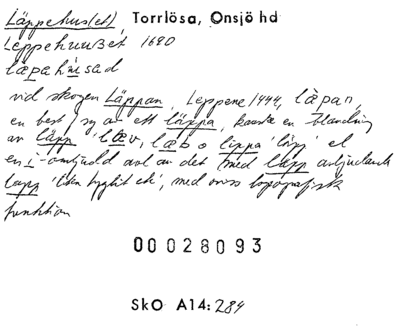 Läppehus(et), Torrlösa, Onsjö hd
Leppehuuset 1690
läpahúsad
vid skogen Läppan, Leppene 1444, läpan,
en best. sg av ett läppa, kanske en blandning
av läpp 'læv, læb o lippa 'läpp' el
en i-omljudd avl av det med läpp avljudande
lapp 'liten tygbit etc', med onso topografisk
funktion
00028093
Sko A14:284